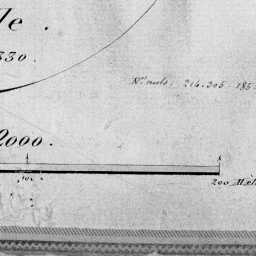 lle.
330.
214.305. 185
2000.
100
200 Mèt